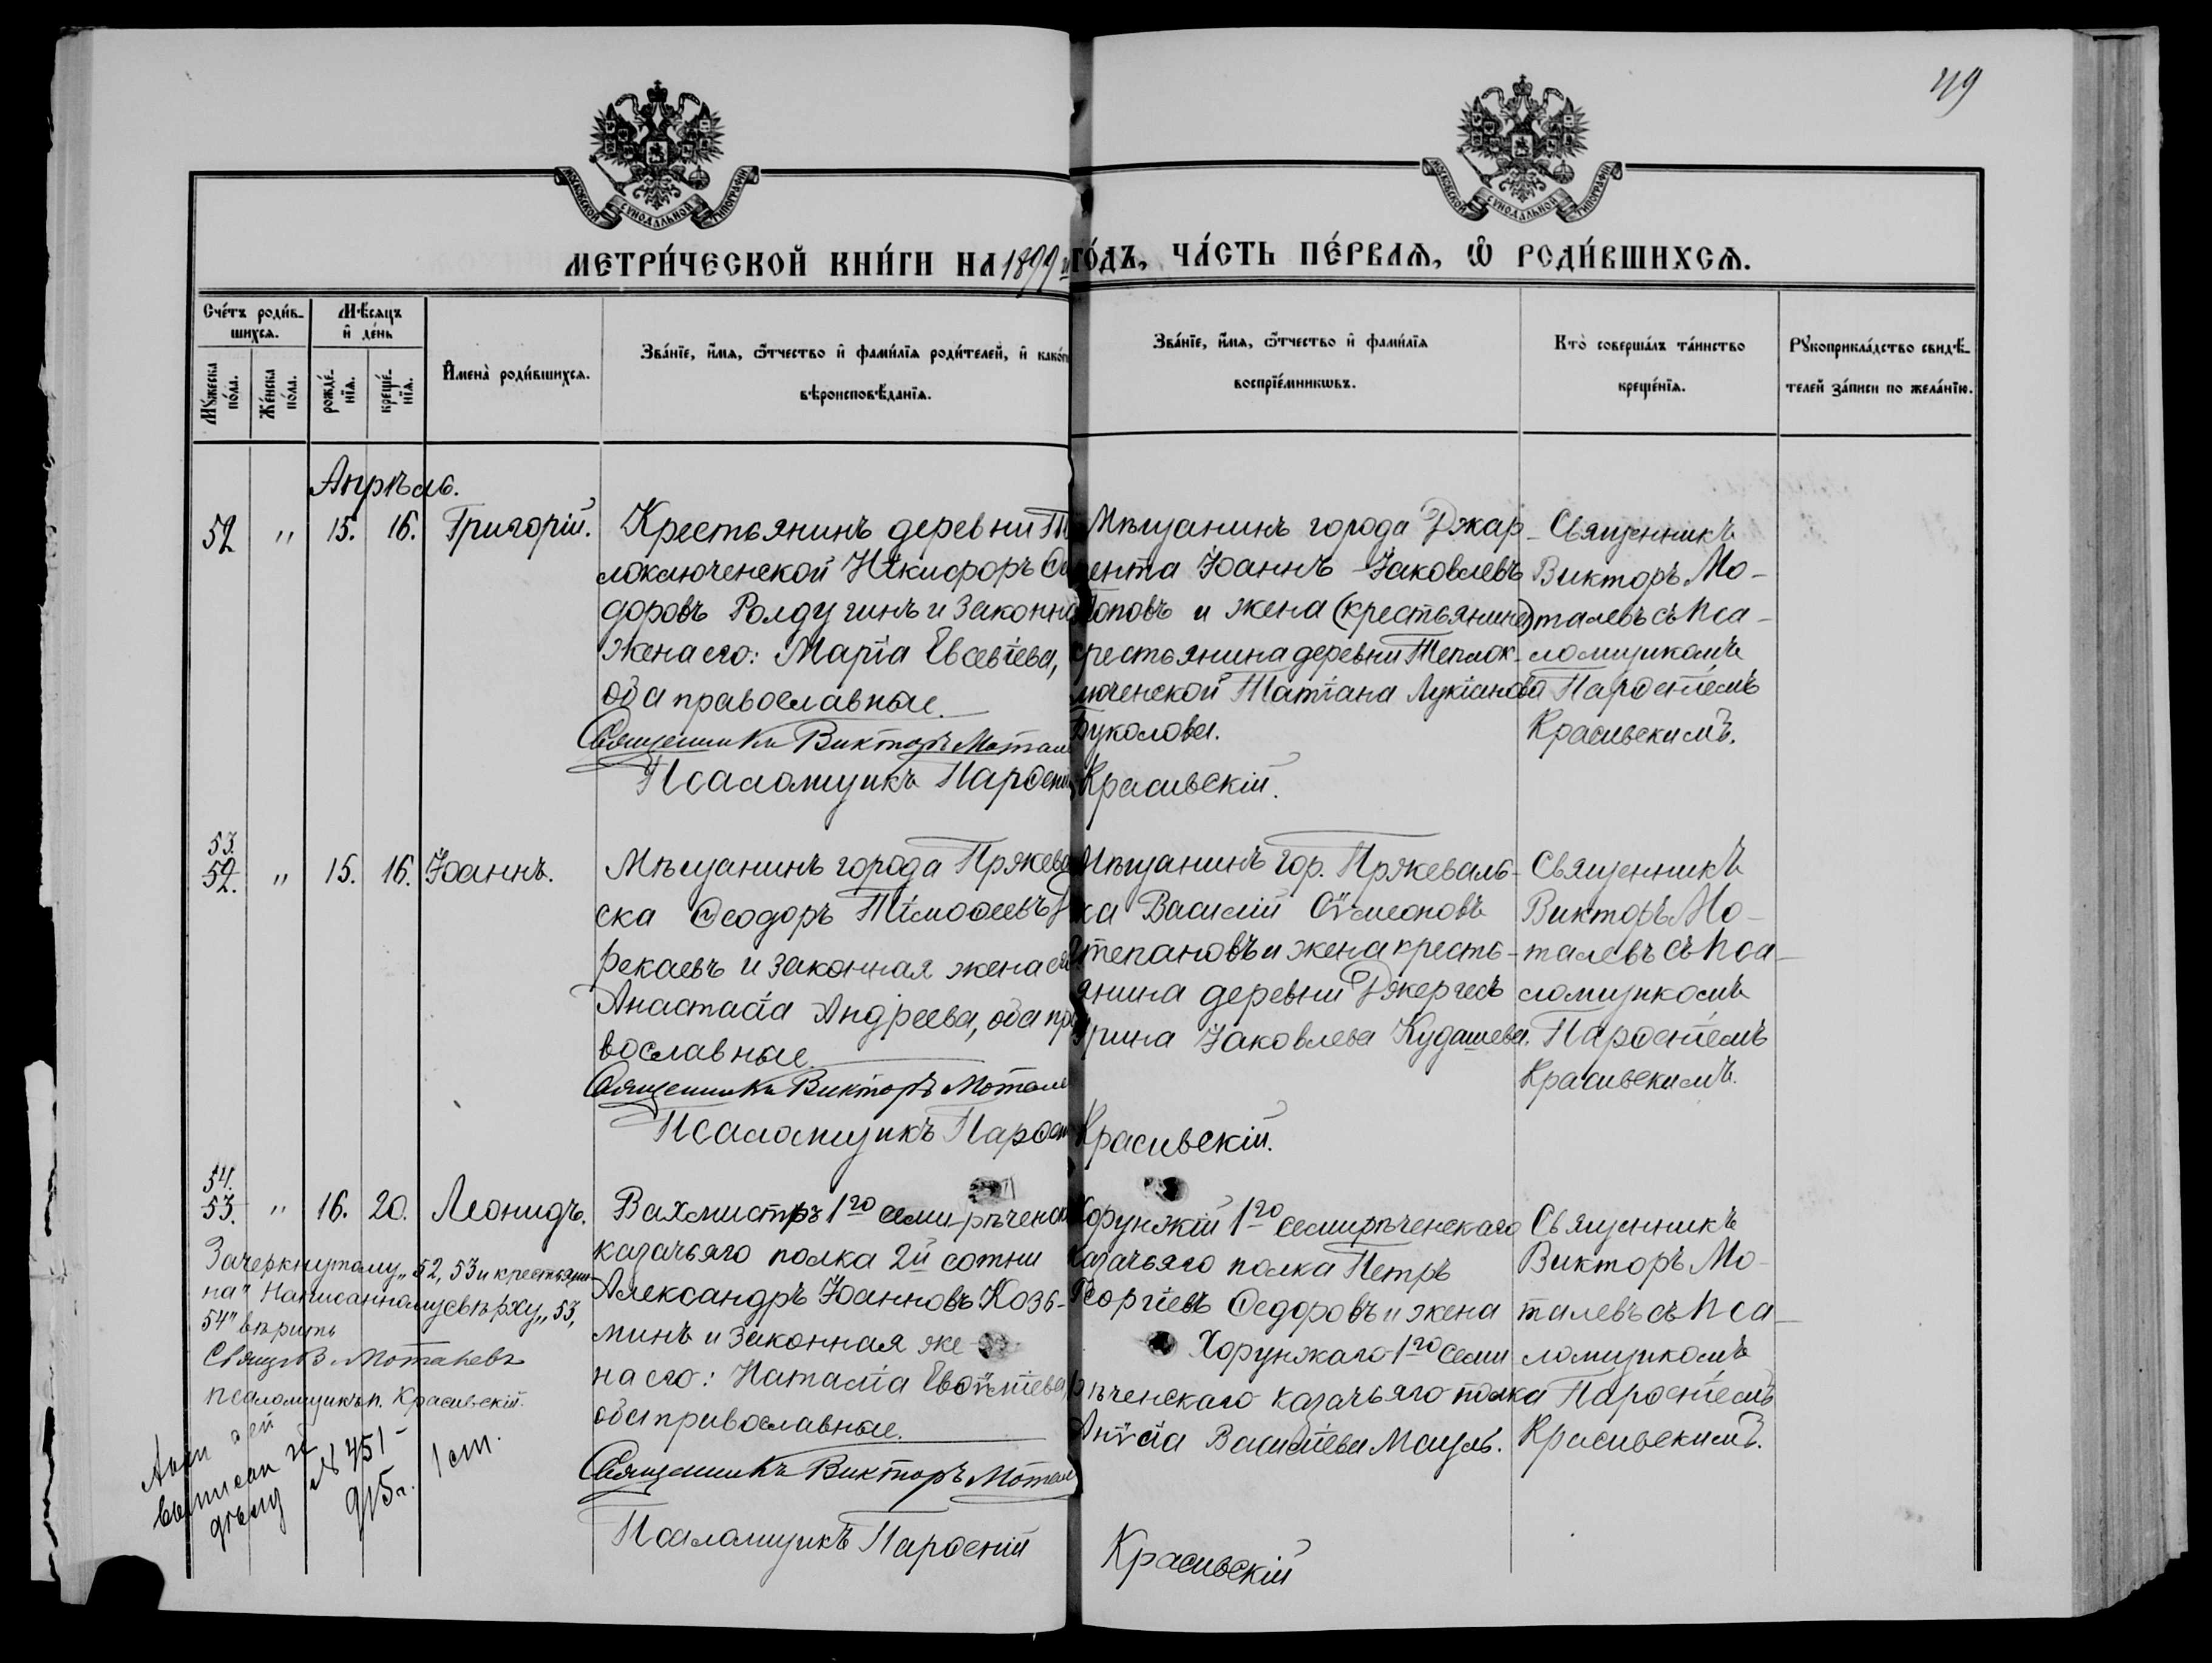 49
МОСКОВСКОЙ СѴНОДАЛЬНОЙ ТИПОГРАФІИ
МОСКОВСКОЙ СѴНОДАЛЬНОЙ ТИПОГРАФІИ
МЕТРИ́ЧЕСКОЙ КНИ́ГИ НА 1899 й ГО́ДЪ, ЧА́СТЬ ПЕ́РВАѦ, Ѡ҆ РОДИ́ВШИХСѦ.
Сче́тъ роди́в-
шихсѧ.
Мѣ́сѧцъ
и҆ де́нь
Мꙋ́жеска
по́ла.
Же́нска
по́ла.
рожде́-
нїѧ.
креще́-
нїѧ.
И҆мена̀ роди́вшихсѧ.
Зва́нїе, и҆́мѧ, ѻ҆́тчество и҆ фами́лїѧ роди́телей, и҆ како́гѡ
вѣроисповѣ́данїѧ.
Зва́нїе, и҆́мѧ, ѻ҆́тчество и҆ фами́лїѧ
воспрїе́мникѡвъ.
Кто̀ соверша́лъ та́инство
креще́нїѧ.
Рꙋкоприкла́дство свидѣ́-
телей за́писи по жела́нїю.
Апрѣль.
52 " 15. 16. Григорій.
Крестьянинъ деревни Те
лоключенской Никифоръ Ѳе
доровъ Ролдугинъ и законна
жена его: Марія Евсевіева,
оба православные.
Священникъ Викторъ Мотале
Псаломщикъ Парѳеній
Мѣщанинъ города Джар-
кента Іоаннъ Іаковлевъ
Поповъ и жена (крестьянина)
крестьянина деревни Теплок-
люченской Татіана Лукіанова
Буколова.
Красивскій.
Священникъ
Викторъ Мо-
талевъ съ Пса-
ломщикомъ
Парѳеніемъ
Красивскимъ.
53.
52. " 15. 16. Іоаннъ.
Мѣщанинъ города Пржеваль
ска Ѳеодоръ Тімоѳеевъ
рекаевъ и законная жена его
Анастасія Андреева, оба пра
вославные.
Священникъ Викторъ Мотале
Псаломщикъ Парѳен
Мѣщанинъ гор. Пржеваль-
ка Василій Сѵмеоновъ
Степановъ и жена кресть-
янина деревни Джергесъ
Ірина Іаковлева Кудашева.
Красивскій.
Священникъ
Викторъ Мо-
талевъ съ Пса-
ломщикомъ
Парѳеніемъ
Красивскимъ.
54.
53. " 16. 20. Леонидъ.
Вахмистръ 1го семирѣченск
казачьяго полка 2й сотни
Александръ Іоанновъ Козь-
минъ и законная же
на его: Наталія Евѳѵміева,
оба православные.
Священникъ Викторъ Мотале
Псаломщикъ Парѳеній
Хорунжій 1го семирѣченскаго
казачьяго полка Петръ
Георгіевъ Ѳедоровъ и жена
Хорунжаго 1го семи
рѣченскаго казачьяго полка
Анѵсія Василіева Мацль.
Красивскій
Священникъ
Викторъ Мо-
талевъ съ Пса-
ломщикомъ
Парѳеніемъ
Красивскимъ.
Зачеркнутому „52, 53 и крестьяни-
на" Написанному сверху „53,
54" вѣрить
Свящ. В. Моталевъ
псаломщикъ П. Красивскій.
выписан
№ 451 -
915 г.
1 ст.